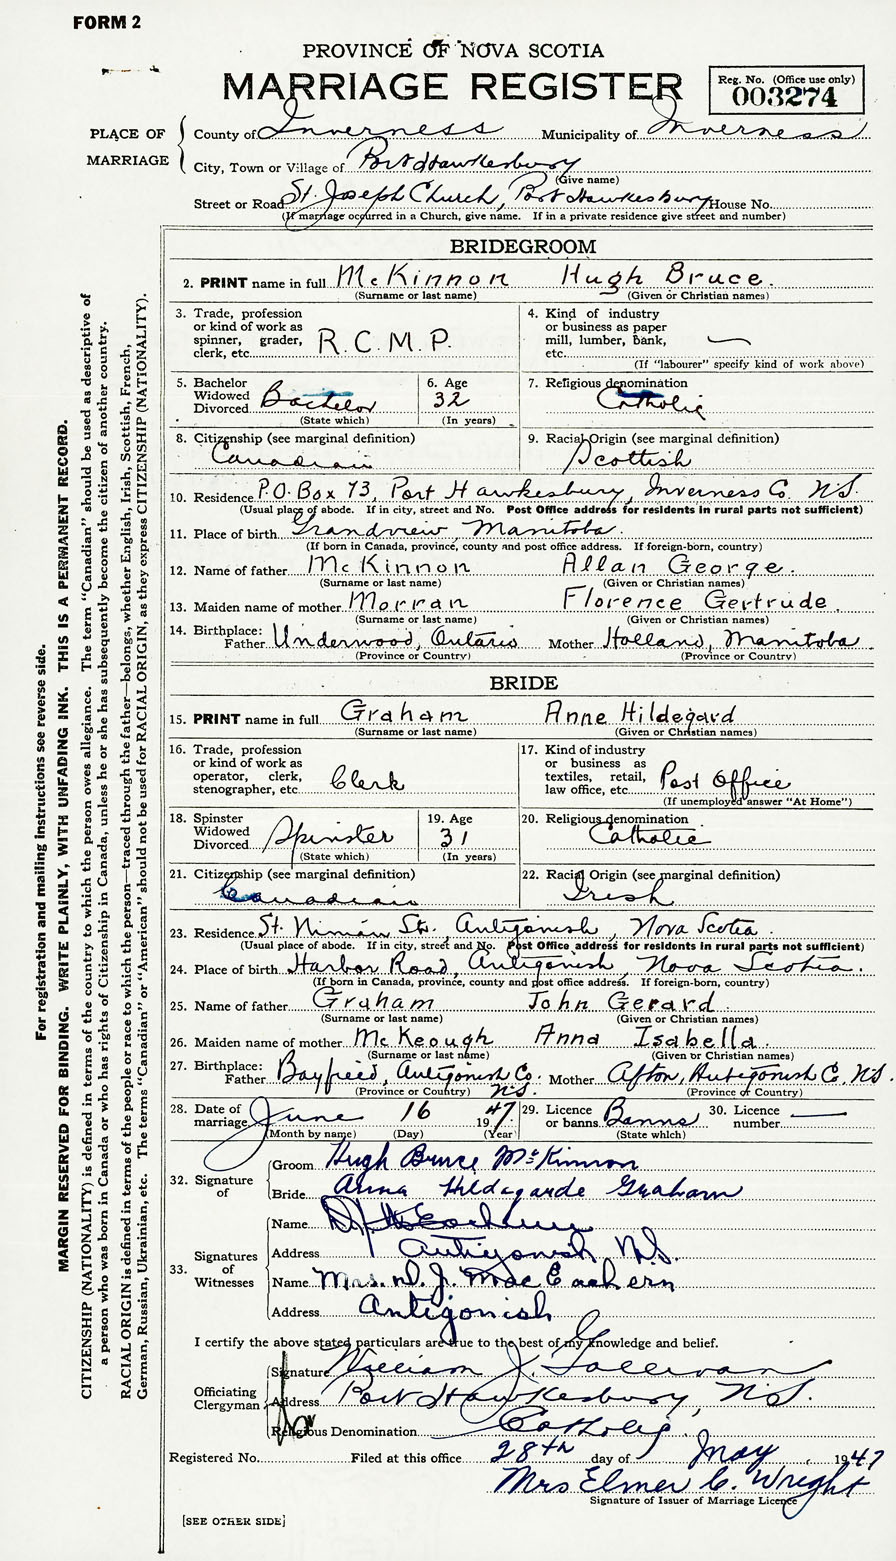 FORM 2
PROVINCE OF NOVA SCOTIA
MARRIAGE REGISTER
Reg. No. (Office use only)
003274
PLACE OF MARRIAGE
County of Inverness Municipality of Inverness
City, Town or Village of Port Hawkesbury
(Give name)
Street or Road St. Joseph Church, Port Hawkesbury House No.
(If marriage occurred in a Church, give name. If in a private residence give street and number)
BRIDEGROOM
2. PRINT name in full McKinnon Hugh Bruce.
(Surname or last name) (Given or Christian names)
3. Trade, profession or kind of work as spinner, grader, clerk, etc. R.C.M.P.
4. Kind of industry or business as paper mill, lumber, bank, etc. —
(If "labourer" specify kind of work above)
5. Bachelor Widowed Divorced Bachelor
(State which)
6. Age 32
(In years)
7. Religious denomination
Catholic
8. Citizenship (see marginal definition)
Canadian
9. Racial Origin (see marginal definition)
Scottish
10. Residence P.O. Box 73, Port Hawkesbury, Inverness Co. N.S.
(Usual place of abode. If in city, street and No. Post Office address for residents in rural parts not sufficient)
11. Place of birth Grandview, Manitoba.
(If born in Canada, province, county and post office address. If foreign-born, country)
12. Name of father McKinnon Allan George.
(Surname or last name) (Given or Christian names)
13. Maiden name of mother Morran Florence Gertrude.
(Surname or last name) (Given or Christian names)
14. Birthplace: Father Underwood, Ontario Mother Holland, Manitoba
(Province or Country) (Province or Country)
BRIDE
15. PRINT name in full Graham Anne Hildegard
(Surname or last name) (Given or Christian names)
16. Trade, profession or kind of work as operator, clerk, stenographer, etc. Clerk
17. Kind of industry or business as textiles, retail, law office, etc. Post Office
(If unemployed answer "At Home")
18. Spinster Widowed Divorced Spinster
(State which)
19. Age 31
(In years)
20. Religious denomination
Catholic
21. Citizenship (see marginal definition)
Canadian
22. Racial Origin (see marginal definition)
Irish
23. Residence St. Ninian St. Antigonish, Nova Scotia.
(Usual place of abode. If in city, street and No. Post Office address for residents in rural parts not sufficient)
24. Place of birth Harbor Road, Antigonish, Nova Scotia.
(If born in Canada, province, county and post office address. If foreign-born, country)
25. Name of father Graham John Gerard.
(Surname or last name) (Given or Christian names)
26. Maiden name of mother McKeough Anna Isabella.
(Surname or last name) (Given or Christian names)
27. Birthplace: Father Bayfield, Antigonish Co. N.S. Mother Afton, Antigonish Co. N.S.
(Province or Country) (Province or Country)
28. Date of marriage June 16 1947
(Month by name) (Day) (Year)
29. Licence or banns Banns
(State which)
30. Licence number —
32. Signature of
Groom Hugh Bruce McKinnon
Bride Anna Hildegarde Graham
33. Signatures of Witnesses
Name
Address Antigonish N.S.
Name Mrs. D. J. MacEachern
Address Antigonish
I certify the above stated particulars are true to the best of my knowledge and belief.
Officiating Clergyman
Signature William J. Gallivan
Address Port Hawkesbury, N.S.
Religious Denomination Catholic.
Registered No. Filed at this office 28th day of May, 1947
Mrs Elmer C. Wright
Signature of Issuer of Marriage Licence
[SEE OTHER SIDE]
For registration and mailing instructions see reverse side.
MARGIN RESERVED FOR BINDING. WRITE PLAINLY, WITH UNFADING INK. THIS IS A PERMANENT RECORD.
CITIZENSHIP (NATIONALITY) is defined in terms of the country to which the person owes allegiance. The term "Canadian" should be used as descriptive of
a person who was born in Canada or who has rights of Citizenship in Canada, unless he or she has subsequently become the citizen of another country.
RACIAL ORIGIN is defined in terms of the people or race to which the person—traced through the father—belongs, whether English, Irish, Scottish, French,
German, Russian, Ukrainian, etc. The terms "Canadian" or "American" should not be used for RACIAL ORIGIN, as they express CITIZENSHIP (NATIONALITY).